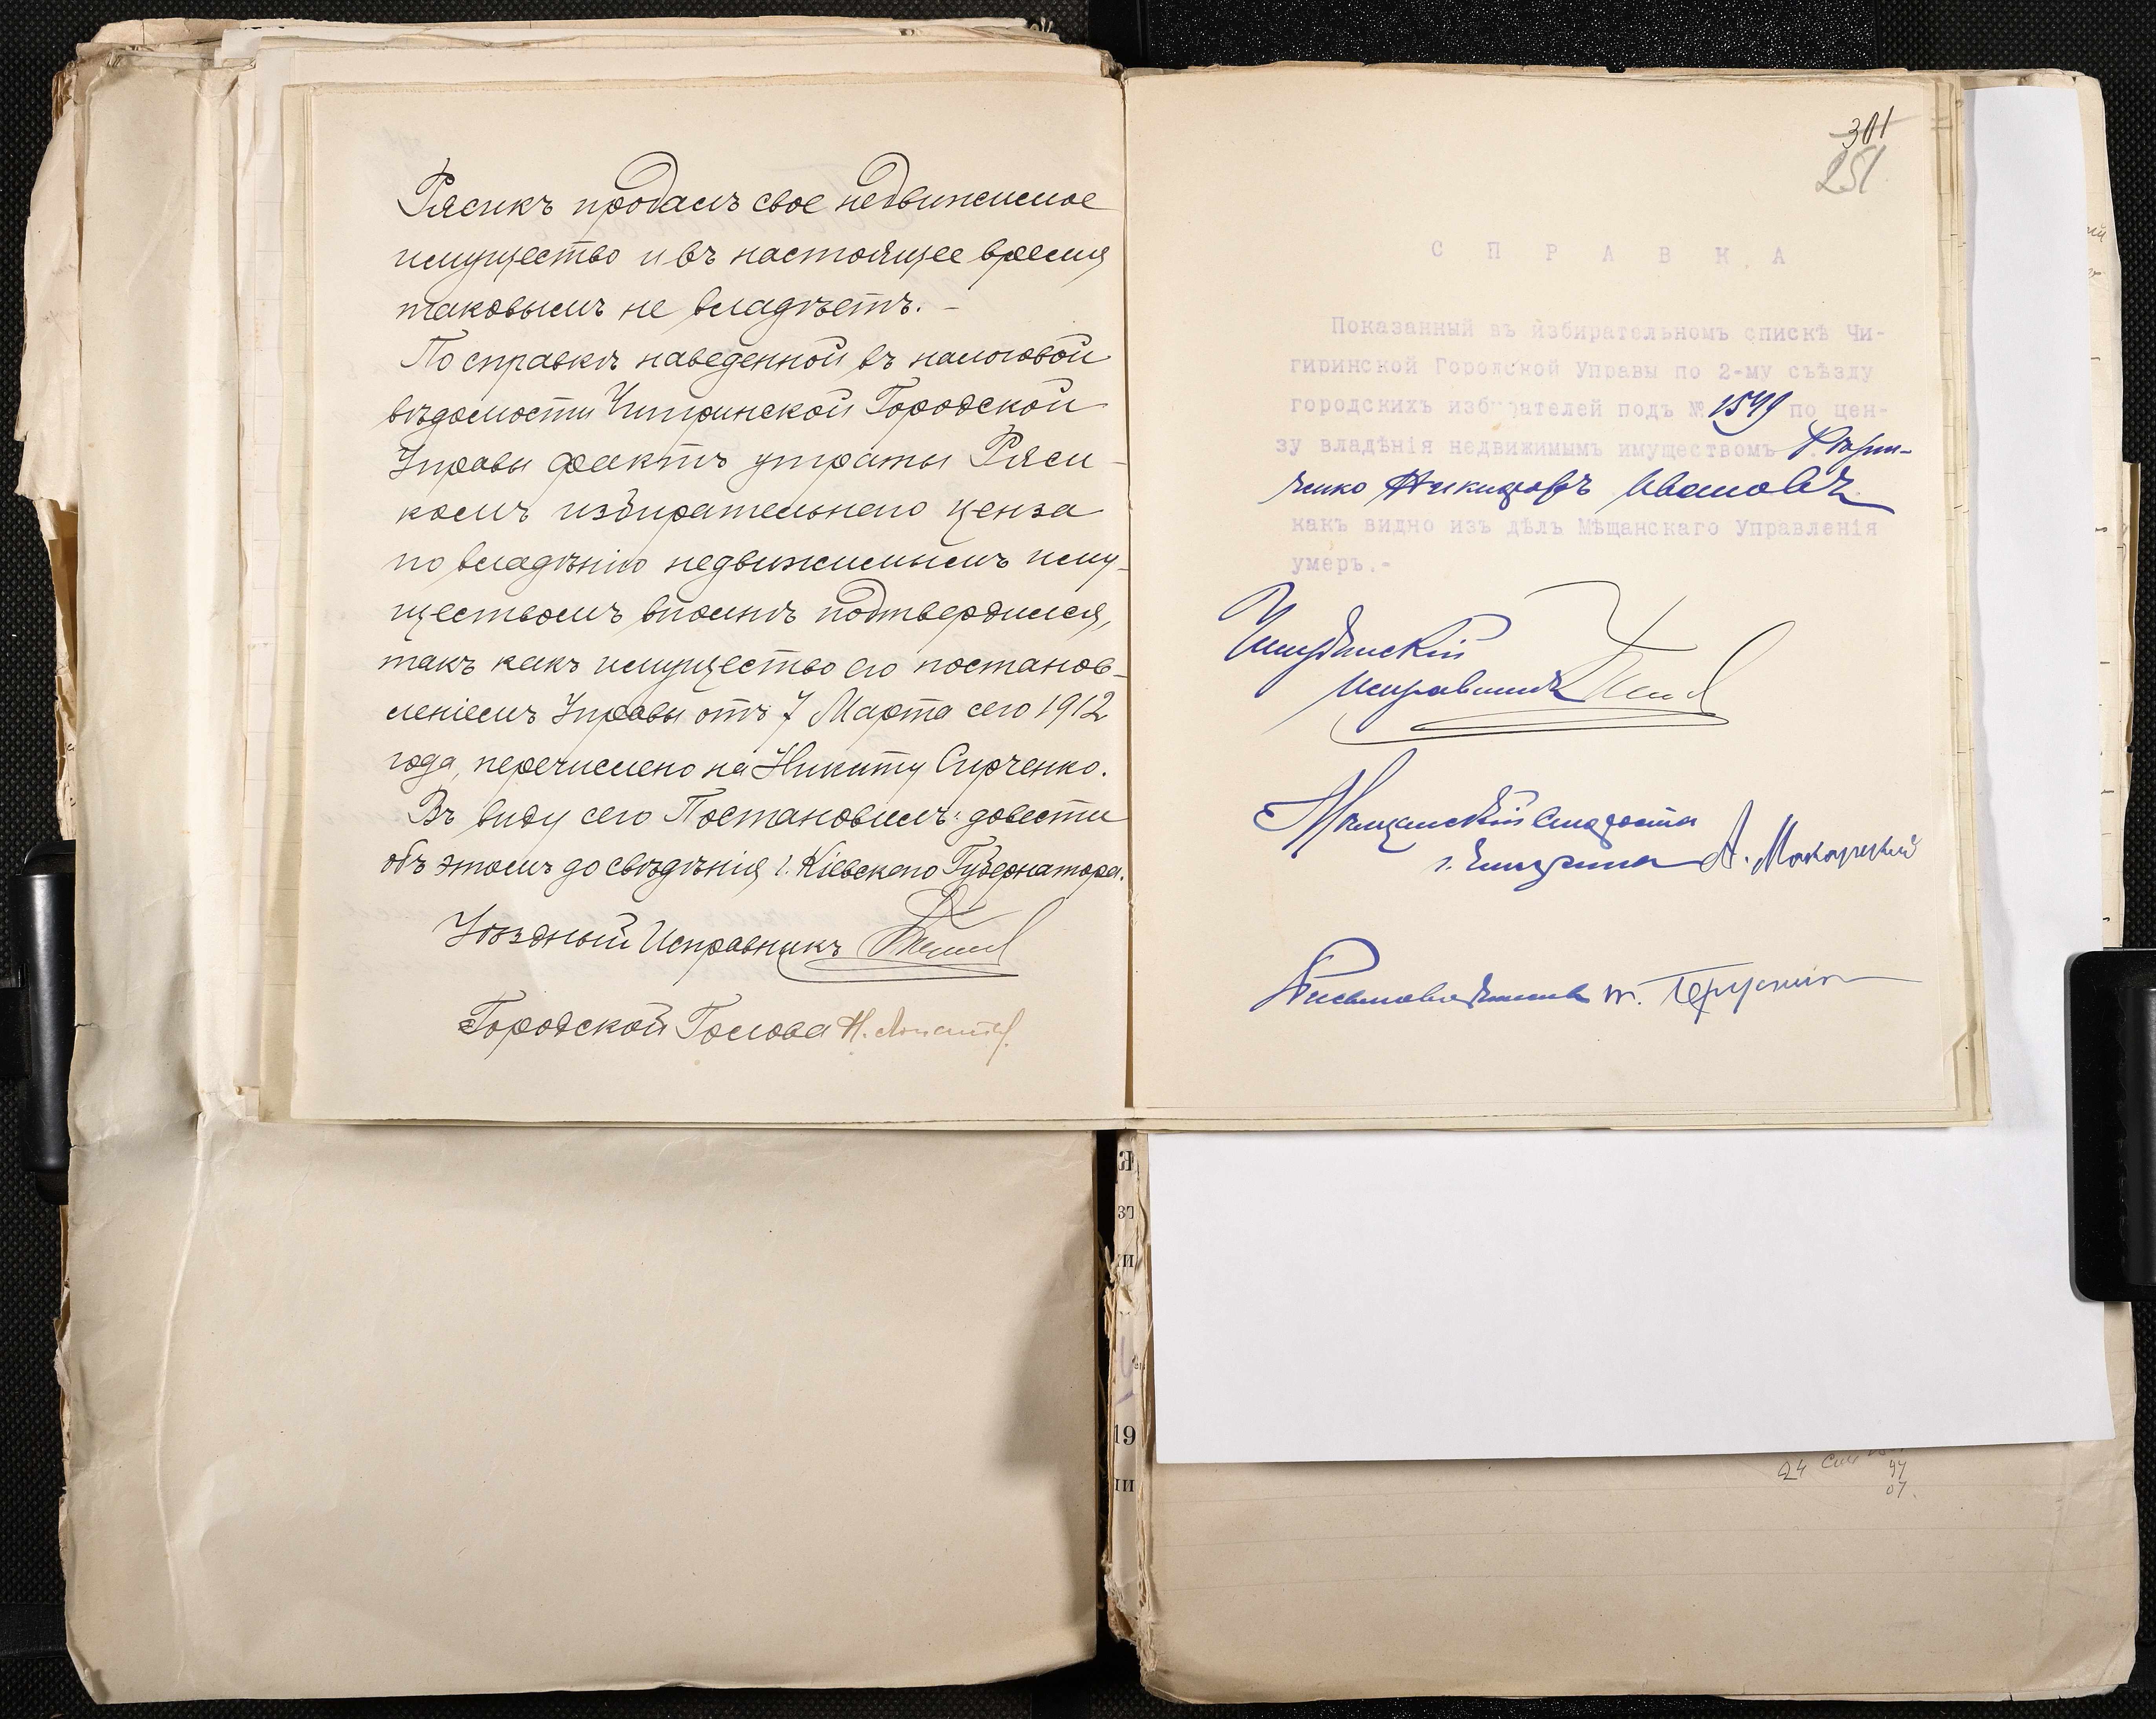 Рясикъ продалъ свое недвижимое
имущество и въ настоящее время
таковымъ не владѣетъ. –
По справкѣ наведенной въ налоговой
вѣдомости Чигиринской Городской
Управы фактъ утраты Ряси-
комъ избирательнаго ценза
по владѣнію недвижимымъ иму-
ществомъ вполнѣ подтвердился,
такъ какъ имущество его постанов-
леніемъ Управы отъ 7 Марта сего 1912
года, перечислено на Никиту Сирченко.
Въ виду сего Постановилъ: довести
объ этомъ до свѣдѣнія г. Кіевскаго Губернатора.
Уѣздный Исправникъ
Городской Голова Н.
301
251
С П Р А В К А
Показанный въ избирательномъ спискѣ Чи-
гиринской Городской Управы по 2-му съѣзду
городскихъ избирателей подъ № 1599 по цен-
зу владѣнія недвижимымъ имуществомъ
ченко Никифоръ Ивановъ
какъ видно изъ дѣлъ Мѣщанскаго Управленія
умеръ.-
Чигиринскій
Исправникъ
Мѣщанскій Староста
г. Чигирина А. Макарскій
Письмоводитель
19
24
97
07.